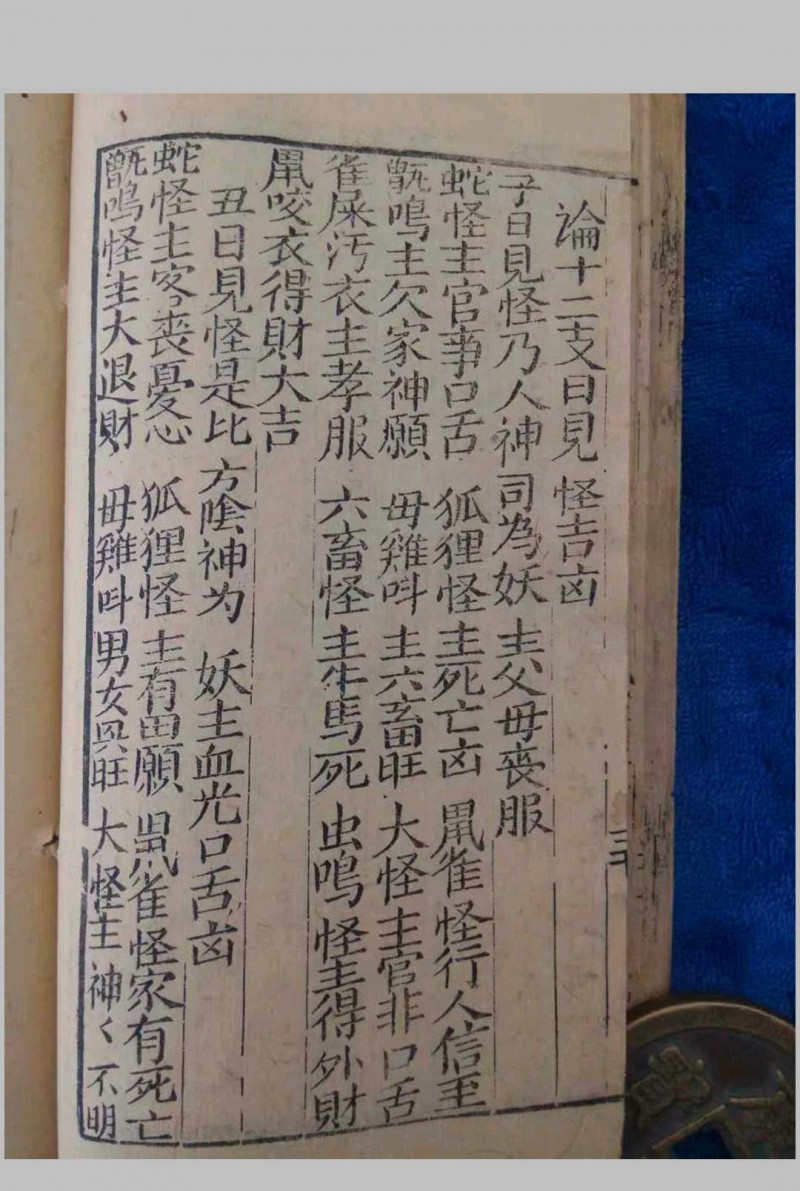 論十二支日見怪吉凶
子日見怪乃人神司為妖主父母丧服
蛇怪主官事口舌 狐狸怪主死亡凶 鼠雀怪行人信至
甑鳴主欠家神願 母雞叫主六畜旺 犬怪主官非口舌
雀屎汚衣主孝服 六畜怪主牛馬死 虫鳴怪主得外財
鼠咬衣得財大吉
丑日見怪是比方陰神为妖主血光口舌凶
蛇怪主客丧憂心 狐狸怪主有田願 鼠雀怪家有死亡
甑鳴怪主大退財 母雞叫男女興旺 大怪主神〻不明
三